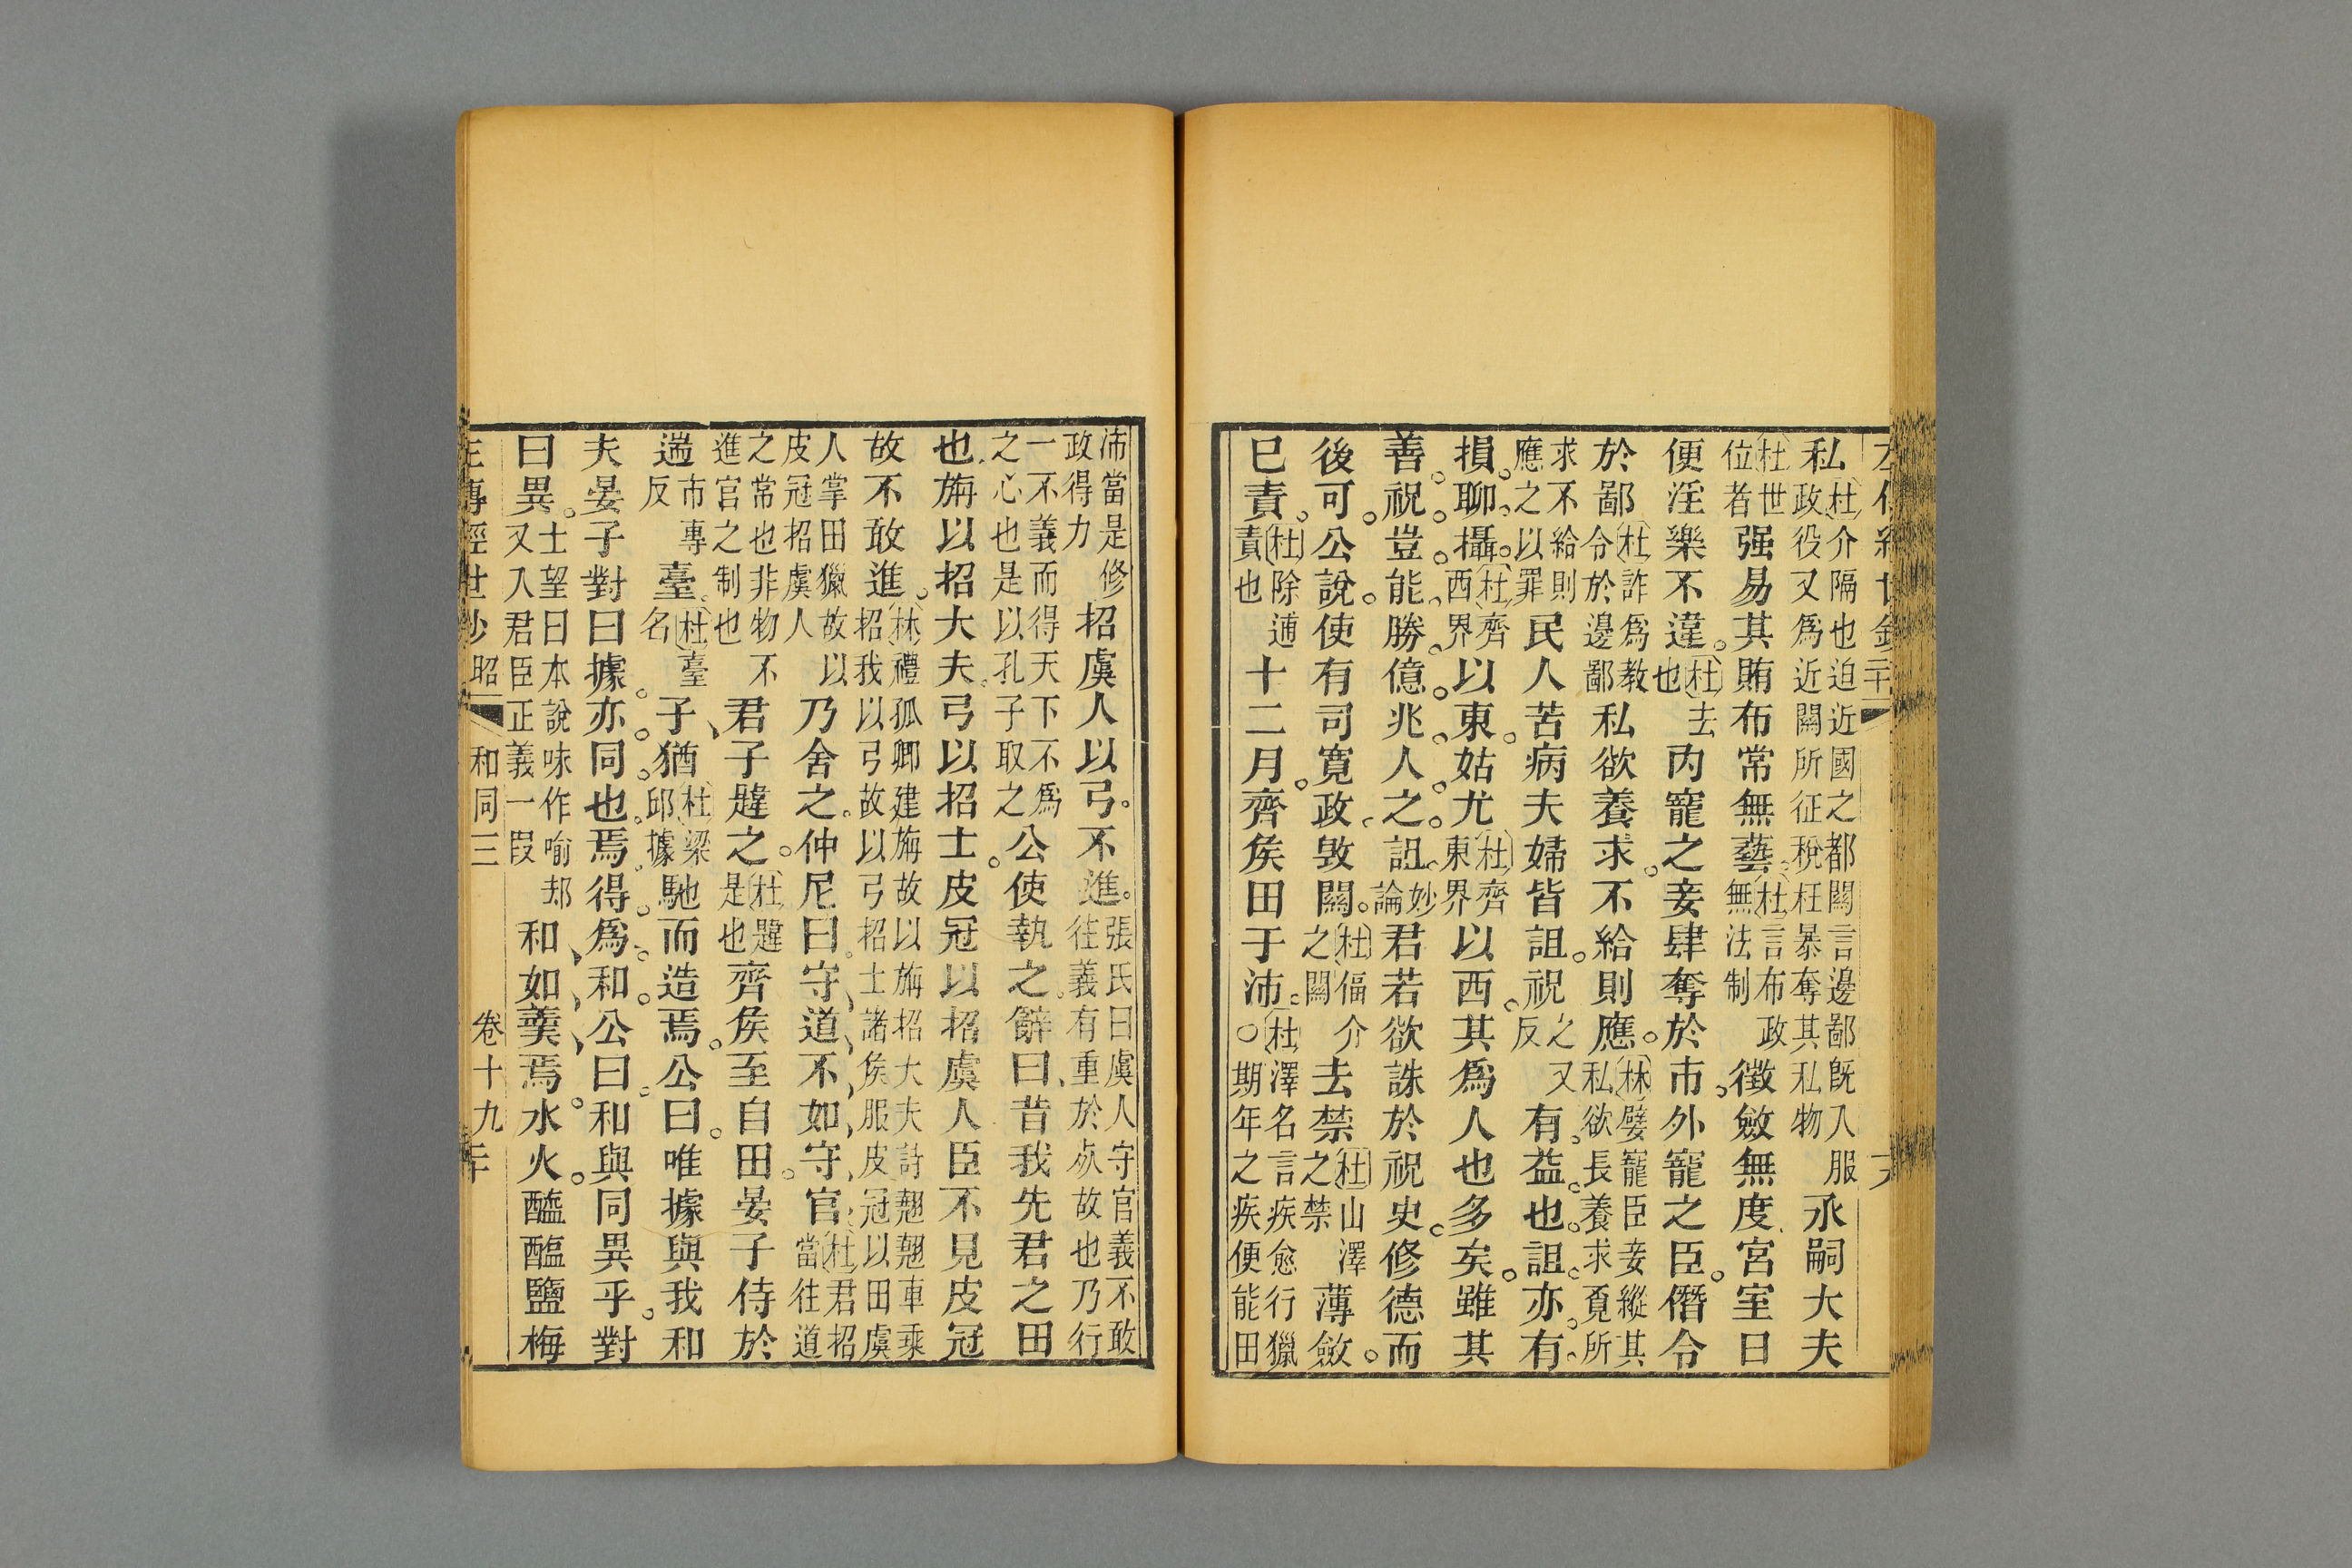 私杜介隔也迫近國之都關言邊鄙既入服政役又爲近關所征稅枉暴奪其私物承嗣大夫
杜世位者强易其賄布常無藝杜言布政無法制徵斂無度宮室日
便淫樂不違杜去也內寵之妾肆奪於市外寵之臣僭令
於鄙杜詐爲教令於邊鄙私欲養求不給則應林嬖寵臣妾縱其私欲長養求覓所
求不給則應之以罪民人苦病夫婦皆詛祝之又反有益也詛亦有
損聊攝杜齊西界以東姑尤杜齊東界以西其爲人也多矣雖其
善祝豈能勝億兆人之詛妙論君若欲誅於祝史修德而
後可公說使有司寬政毀關杜偪介之關去禁杜山澤之禁薄斂
巳責杜除逋責也十二月齊矦田于沛○杜澤名言疾愈行獵期年之疾便能田
沛當是修政得力招虞人以弓不進張氏曰虞人守官義不敢往義有重於死故也乃行
一不義而得天下不爲之心也是以孔子取之公使執之辭曰昔我先君之田
也旃以招大夫弓以招士皮冠以招虞人臣不見皮冠
故不敢進林禮孤卿建旃故以旃招大夫詩翹翹車乘招我以弓故以弓招士諸矦服皮冠以田虞
人掌田獵故以皮冠招虞人乃舍之仲尼曰守道不如守官杜君招當往道
之常也非物不進官之制也君子韙之杜韙是也齊矦至自田晏子侍於
遄市專反臺杜臺名子猶杜梁邱據馳而造焉公曰唯據與我和
夫晏子對曰據亦同也焉得爲和公曰和與同異乎對
曰異士望曰本說味作喻却又入君臣正義一段和如羹焉水火醯醢鹽梅
昭 和同三 卷十九